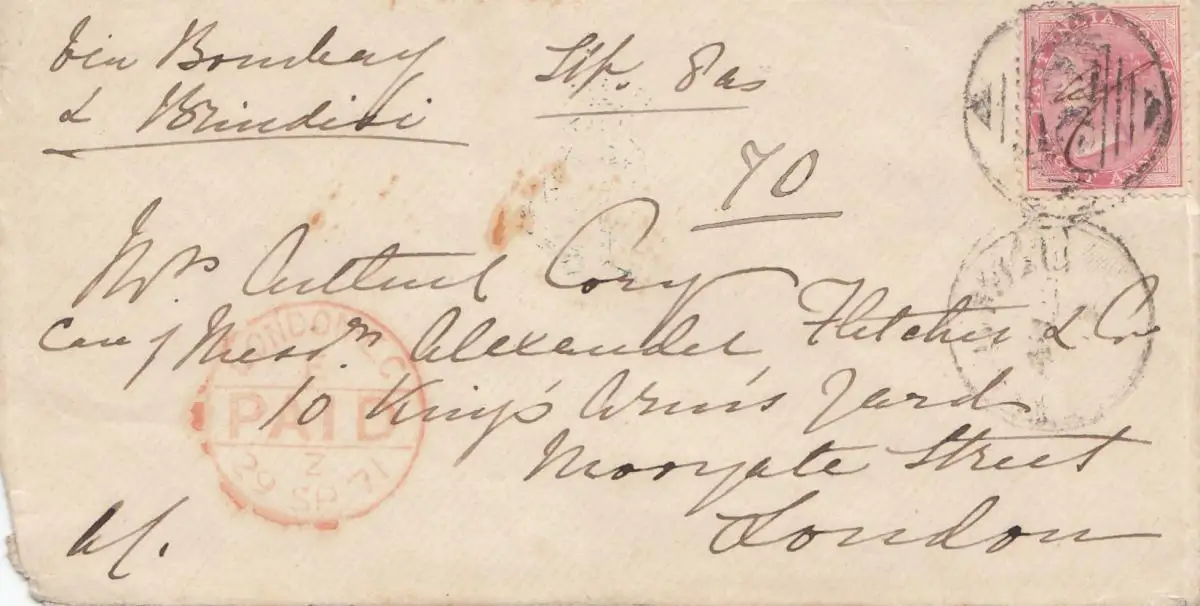 Via Bombay
& Brindisi
Stp. 8as
70
Mrs. Arthur Cory
Care of Messrs. Alexander Fletcher & Co
10 King's Arms Yard
Moorgate Street
London
LONDON E.C
PAID
Z
29 SP 71
INDIA